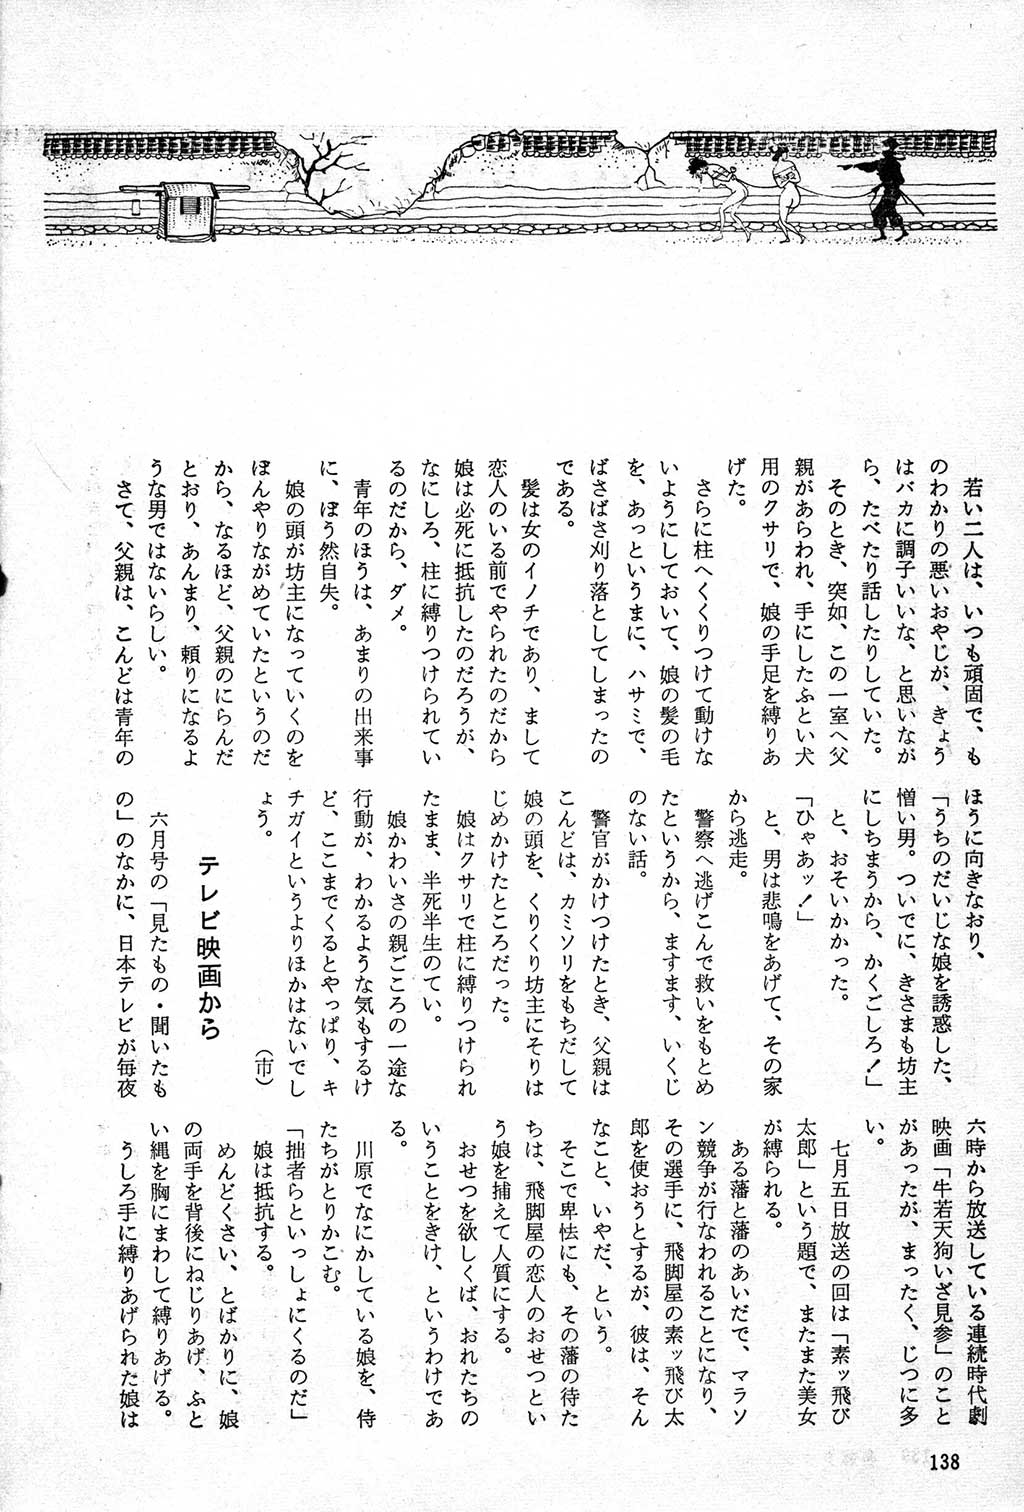 若い二人は、いつも頑固で、も
のわかりの悪いおやじが、きょう
はバカに調子いいな、と思いなが
ら、たべたり話したりしていた。
そのとき、突如、この一室へ父
親があらわれ、手にしたふとい犬
用のクサリで、娘の手足を縛りあ
げた。
さらに柱へくくりつけて動けな
いようにしておいて、娘の髪の毛
を、あっというまに、ハサミで、
ばさばさ刈り落としてしまったの
である。
髪は女のイノチであり、まして
恋人のいる前でやられたのだから
娘は必死に抵抗したのだろうが、
なにしろ、柱に縛りつけられてい
るのだから、ダメ。
青年のほうは、あまりの出来事
に、ぼう然自失。
娘の頭が坊主になっていくのを
ぼんやりながめていたというのだ
から、なるほど、父親のにらんだ
とおり、あんまり、頼りになるよ
うな男ではないらしい。
さて、父親は、こんどは青年の
ほうに向きなおり、
「うちのだいじな娘を誘惑した、
憎い男。ついでに、きさまも坊主
にしちまうから、かくごしろ！」
と、おそいかかった。
「ひゃあッ！」
と、男は悲鳴をあげて、その家
から逃走。
警察へ逃げこんで救いをもとめ
たというから、ますます、いくじ
のない話。
警官がかけつけたとき、父親は
こんどは、カミソリをもちだして
娘の頭を、くりくり坊主にそりは
じめかけたところだった。
娘はクサリで柱に縛りつけられ
たまま、半死半生のてい。
娘かわいさの親ごころの一途な
行動が、わかるような気もするけ
ど、ここまでくるとやっぱり、キ
チガイというよりほかはないでし
ょう。
（市）
テレビ映画から
六月号の「見たもの・聞いたも
の」のなかに、日本テレビが毎夜
六時から放送している連続時代劇
映画「牛若天狗いざ見参」のこと
があったが、まったく、じつに多
い。
七月五日放送の回は「素ッ飛び
太郎」という題で、またまた美女
が縛られる。
ある藩と藩のあいだで、マラソ
ン競争が行なわれることになり、
その選手に、飛脚屋の素ッ飛び太
郎を使おうとするが、彼は、そん
なこと、いやだ、という。
そこで卑怯にも、その藩の待た
ちは、飛脚屋の恋人のおせつとい
う娘を捕えて人質にする。
おせつを欲しくば、おれたちの
いうことをきけ、というわけであ
る。
川原でなにかしている娘を、侍
たちがとりかこむ。
「拙者らといっしょにくるのだ」
娘は抵抗する。
めんどくさい、とばかりに、娘
の両手を背後にねじりあげ、ふと
い縄を胸にまわして縛りあげる。
うしろ手に縛りあげられた娘は
138